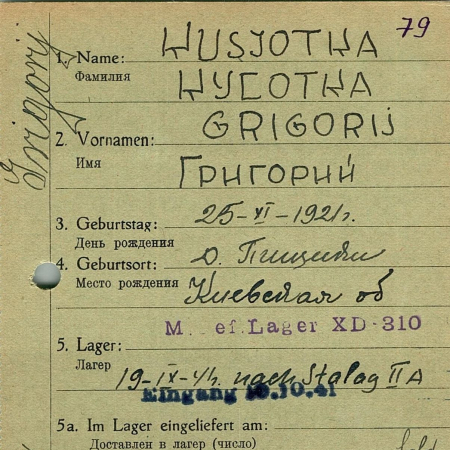 79
Grigorij
1. Name: HUSJOTKA
Фамилия НУСОТКА
2. Vornamen: GRIGORIJ
Имя ГРИГОРИЙ
3. Geburtstag: 25-XI-1921г.
День рождения
4. Geburtsort:
Место рождения Киевская об
M. ef. Lager XD-310
5. Lager:
Лагерь 19-IX-41. nach Stalag II A
Eingang 10.41
5a. Im Lager eingeliefert am:
Доставлен в лагерь (число)